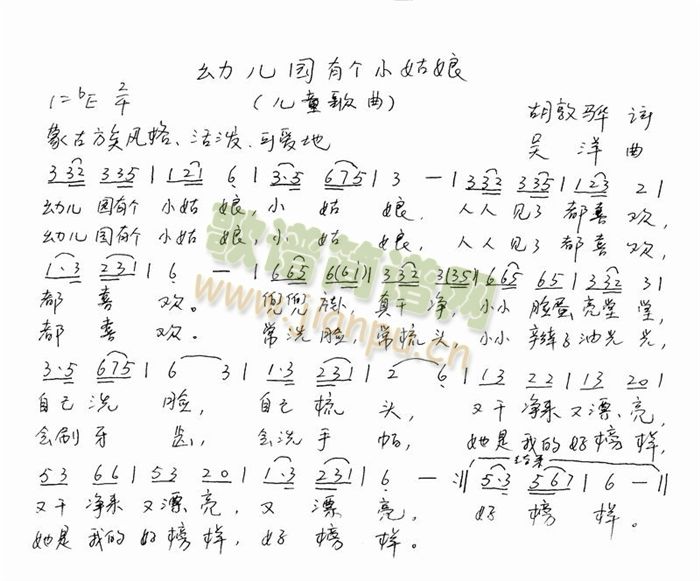 幼儿园有个小姑娘
1=bE 2/4 (儿童歌曲) 胡敦骅 词
蒙古族风格、活泼、可爱地 吴洋 曲
3 32 335 | 121 6 | 3·5 675 | 3 — | 332 335 | 123 2 |
幼儿园有个小姑娘,小姑娘,人人见了都喜欢,
幼儿园有个小姑娘,小姑娘,人人见了都喜欢,
1·3 231 | 6 — | 665 6(61) | 332 3(35) | 665 65 | 332 31 |
都喜欢。兜兜裤真干净,小小脸蛋亮堂堂,
都喜欢。常洗脸,常梳头,小小辫子油光光,
3·5 675 | 6 3 | 1·3 231 | 2 6 | 13 22 | 13 20 |
自己洗脸,自己梳头,又干净来又漂亮,
会刷牙齿,会洗手帕,她是我的好榜样,
结束
53 66 | 53 20 | 1·3 231 | 6 — :|| 5·3 567 | 6 — ||
又干净来又漂亮,又漂亮,好榜样。
她是我的好榜样,好榜样。
歌谱简谱网
www.jianpu.cn